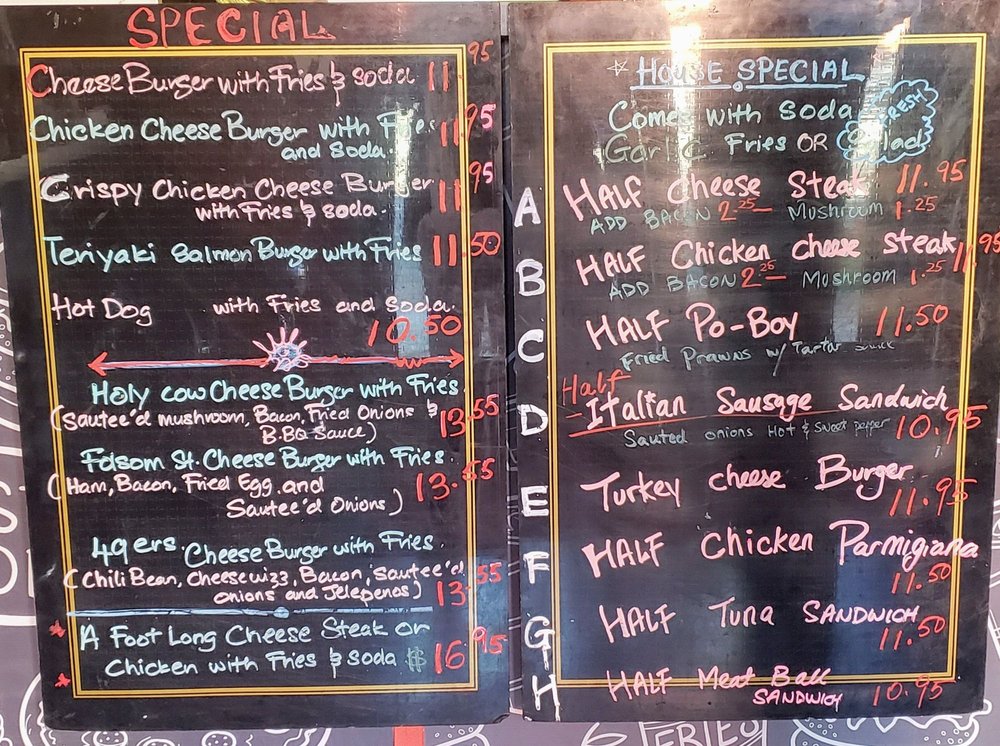 SPECIAL
Cheese Burger with Fries & soda 11.95
Chicken Cheese Burger with Fries 11.95
and Soda.
Crispy Chicken Cheese Burger 11.95
with Fries & soda.
Teriyaki Salmon Burger with Fries 11.50
Hot Dog with Fries and Soda.
10.50
Holy cow Cheese Burger with Fries.
(Sautee'd mushroom, Bacon, Fried Onions & 13.55
B.BQ Sauce)
Folsom St. Cheese Burger with Fries.
(Ham, Bacon, Fried Egg and 13.55
Sautee'd Onions)
49ers. Cheese Burger with Fries.
(Chili Bean, Cheese wizz, Bacon, Sautee'd 13.55
onions and Jelepenos)
A Foot Long Cheese Steak or
Chicken with Fries & soda $16.95
HOUSE SPECIAL
Comes with Soda
Garlic Fries OR FRESH Salad
A HALF Cheese Steak 11.95
ADD BACON 2.25 — Mushroom 1.25
B HALF Chicken cheese steak 11.95
ADD BACON 2.25 — Mushroom 1.25
C HALF Po-Boy 11.50
Fried Prawns w/ Tartar
D Half Italian Sausage Sandwich
Sauted onions Hot & Sweet pepper 10.95
E Turkey cheese Burger
11.95
F HALF Chicken Parmigiana
11.50
G HALF Tuna SANDWICH
11.50
H HALF Meat Ball
SANDWICH 10.95